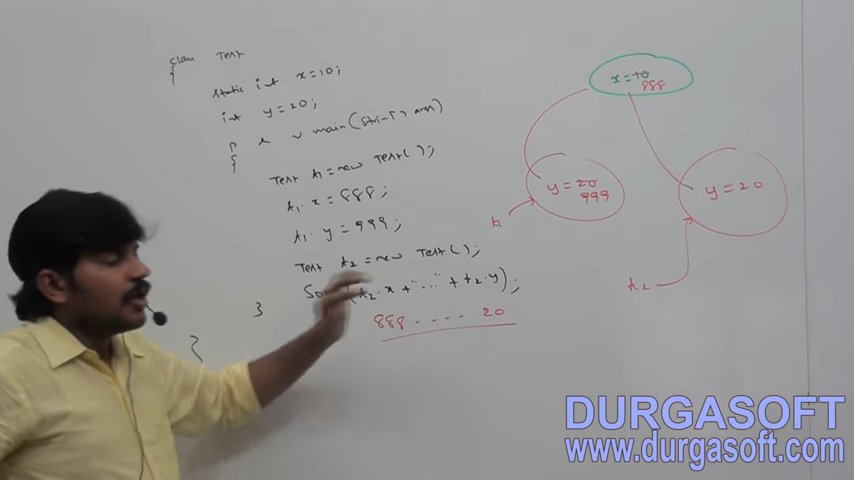 class Test
{
static int x=10;
int y=20;
p s v main(String[] args)
{
Test t1=new Test();
t1.x=888;
t1.y=999;
Test t2=new Test();
Sop(t2.x+"..."+t2.y);
}
888.... 20
}
x=10
888
y=20
999
t1
y=20
t2
DURGASOFT
www.durgasoft.com